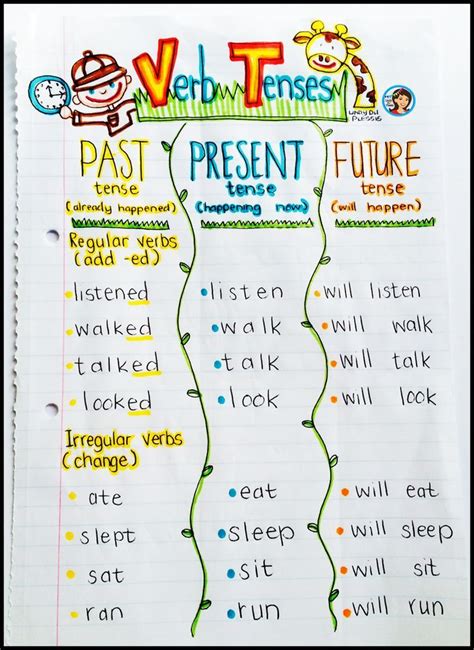 Verb Tenses
LINDY DU PLESSIS
PAST PRESENT FUTURE
tense tense tense
(already happened) (happening now) (will happen)
Regular verbs
(add -ed)
listened listen will listen
walked walk will walk
talked talk will talk
looked look will look
Irregular verbs
(change)
ate eat will eat
slept sleep will sleep
sat sit will sit
ran run will run